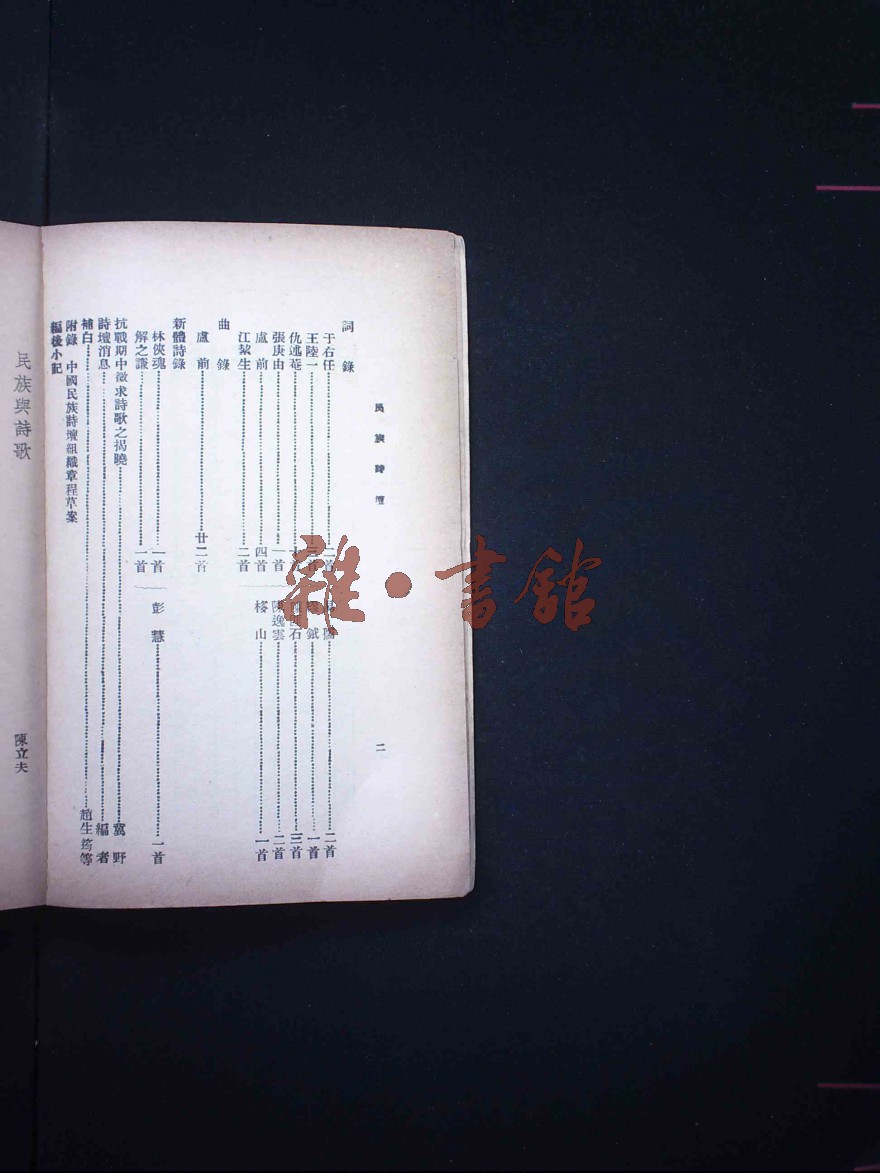 民族詩壇
二
詞錄
于右任 二首 二首
王陸一 首 鉞 一首
仇述菴 石 三首
張庚由 一首 陳逸雲 二首
盧前 四首 移山 一首
江絜生 二首
曲錄
盧前 廿二首
新體詩錄
林俠魂 一首 彭慧 一首
解之謙 一首
抗戰期中徵求詩歌之揭曉 冀野
詩壇消息 編者
補白 趙生筠等
附錄 中國民族詩壇組織章程草案
編後小記
民族與詩歌
陳立夫
雜·書館